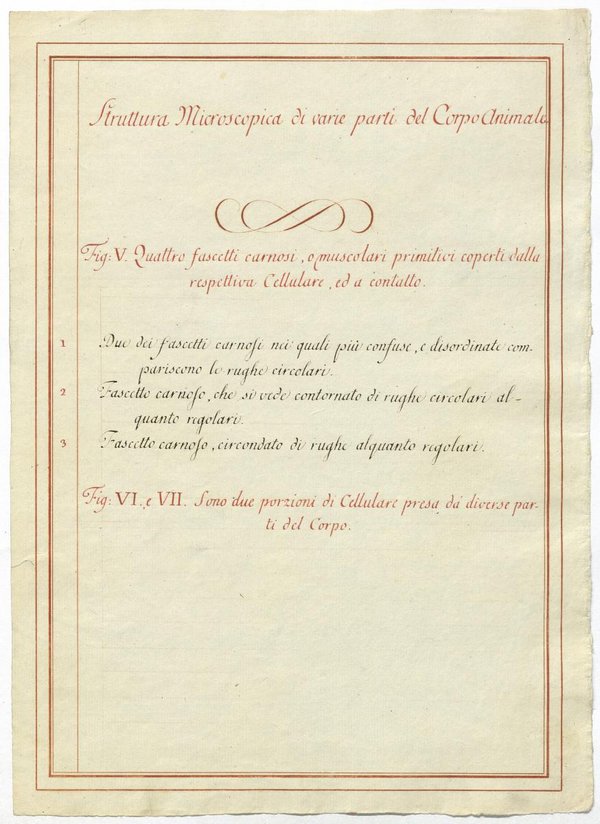 Struttura Microscopica di varie parti del Corpo Animale.
Fig: V. Quattro fascetti carnosi, o muscolari primitivi coperti dalla
respettiva Cellulare, ed a contatto.
1 Due dei fascetti carnosi nei quali più confuse, e disordinate com-
pariscono le rughe circolari.
2 Fascetto carnoso, che si vede contornato di rughe circolari al-
quanto regolari.
3 Fascetto carnoso, circondato di rughe alquanto regolari.
Fig: VI. e VII. Sono due porzioni di Cellulare presa da diverse par-
ti del Corpo.